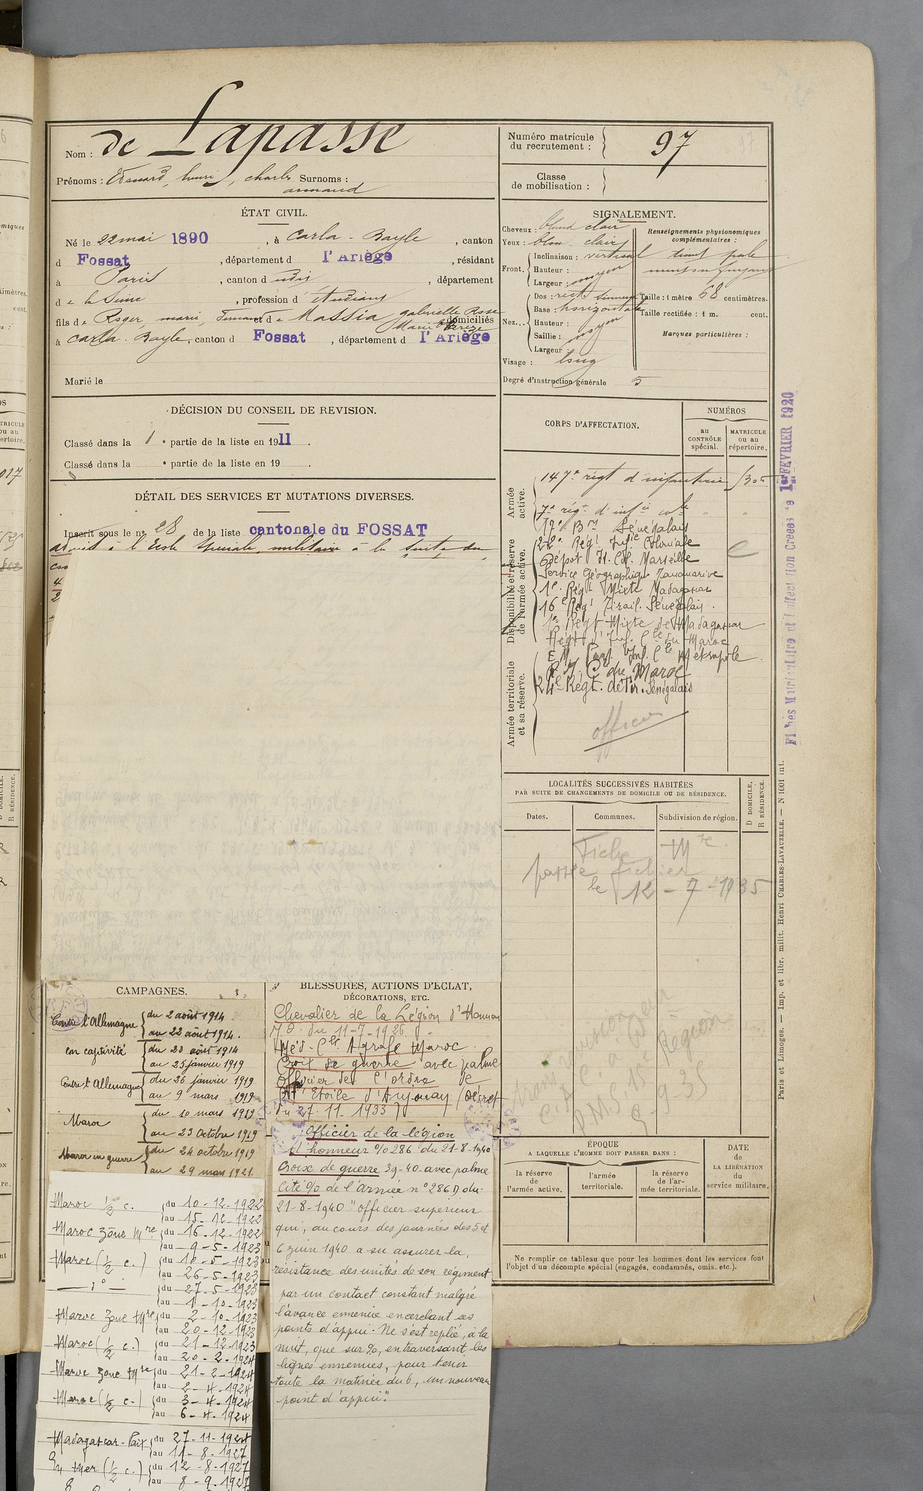 Nom : de Lapasse
Prénoms : Edouard, henri, charles Surnoms :
armand
Numéro matricule
du recrutement : 97
Classe
de mobilisation :
ÉTAT CIVIL.
Né le 22 mai 1890, à Carla-Bayle, canton
d Fossat, département d l'Ariège, résidant
à Paris, canton d udit, département
d e la Seine, profession d étudiant
fils de Roger, marie, et de Massia gabrielle Rose
domiciliés
à Carla-Bayle, canton d Fossat, département d l'Ariège
Marié le
SIGNALEMENT.
Cheveux : blond clair
Yeux : bleu clair
Front. Inclinaison : vertical
Hauteur :
Largeur : moyen
Nez. Dos : rect.
Base : horizontale
Hauteur :
Saillie : moyen
Largeur :
Visage : long
Degré d'instruction générale 5
Renseignements physionomiques
complémentaires :
teint pale
Taille : 1 mètre 68 centimètres.
Taille rectifiée : 1 m. cent.
Marques particulières :
DÉCISION DU CONSEIL DE REVISION.
Classé dans la 1 e partie de la liste en 1911.
Classé dans la e partie de la liste en 19 .
DÉTAIL DES SERVICES ET MUTATIONS DIVERSES.
Inscrit sous le no 28 de la liste cantonale du FOSSAT
à l'école militaire à la suite du
CORPS D'AFFECTATION.
NUMÉROS
au
CONTRÔLE
spécial.
MATRICULE
ou au
répertoire.
Armée
active.
Disponibilité et réserve
de l'armée active.
Armée territoriale
et sa réserve.
147e régt d'infanterie
7e régt d'infie col
12e Bon Sénégalais
22e Regt Infie Coloniale
Dépot Is. Col. Marseille
Service Géographique Tananarive
1er Régt Mixte Madagascar
16e Régt Tirail. Sénégalais.
1er Regt Mixte de Madagascar
Regt d'Inf. Cle du Maroc
Métropole
du Maroc
24e Régt. de Tir. Sénégalais
officier
1er FEVRIER 1920
LOCALITÉS SUCCESSIVES HABITÉES
PAR SUITE DE CHANGEMENTS DE DOMICILE OU DE RÉSIDENCE.
Dates.
Communes.
Subdivision de région.
D DOMICILE,
R RÉSIDENCE.
Fiche Mle
passée fichier
le 12-7-1935
9-9-35
CAMPAGNES.
Contre l'Allemagne du 2 août 1914
au 22 août 1914.
en captivité du 23 août 1914
au 25 janvier 1919
Contre l'Allemagne du 26 janvier 1919
au 9 mars 1919
Maroc du 10 mars 1919
au 23 Octobre 1919
Maroc en guerre du 24 octobre 1919
au 29 mars 1921
Maroc ½ c. du 10-12-1922
au 15-12-1922
Maroc Zone Mre du 16-12-1922
au 9-5-1923
Maroc (½ c.) du 10-5-1923
au 26-5-1923
du 27-5-1923
au 1-10-1923
Maroc Zone Mre du 2-10-1923
au 20-12-1923
Maroc (½ c.) du 21-12-1923
au 20-2-1924
Maroc Zone Mre du 21-2-1924
au 2-4-1924
Maroc (½ c.) du 3-4-1924
au 6-4-1924
Madagascar-Paix du 27-11-1924
au 11-8-1927
En Mer (½ c.) du 12-8-1927
au 8-9-1927
BLESSURES, ACTIONS D'ÉCLAT,
DÉCORATIONS, ETC.
Chevalier de la Légion d'Honneur
J.O. du 11-7-1926
Méd. Cle Agrafe Maroc.
Croix de guerre avec palme
Officier de l'ordre de
l'Etoile d'Anjouan (Décret
du 27.11.1933)
Officier de la légion
d'honneur %286 du 21-8-1940
Croix de guerre 39-40 avec palme
Cité % de l'Armée n° 286 D du
21-8-1940 "officier supérieur
qui, au cours des journées des 5 et
6 juin 1940 a su assurer la
résistance des unités de son régiment
par un contact constant malgré
l'avance ennemie encerclant ses
points d'appui. Ne s'est replié, à la
nuit, que sur %, en traversant les
lignes ennemies, pour tenir
toute la matinée du 6, un nouveau
point d'appui."
ÉPOQUE
A LAQUELLE L'HOMME DOIT PASSER DANS :
la réserve
de
l'armée active.
l'armée
territoriale.
la réserve
de l'ar-
mée territoriale.
DATE
de
LA LIBÉRATION
du
service militaire.
Ne remplir ce tableau que pour les hommes dont les services font
l'objet d'un décompte spécial (engagés, condamnés, omis, etc.).
Paris et Limoges. — Imp. et libr. milit. Henri CHARLES-LAVAUZELLE. — N 1601 int.